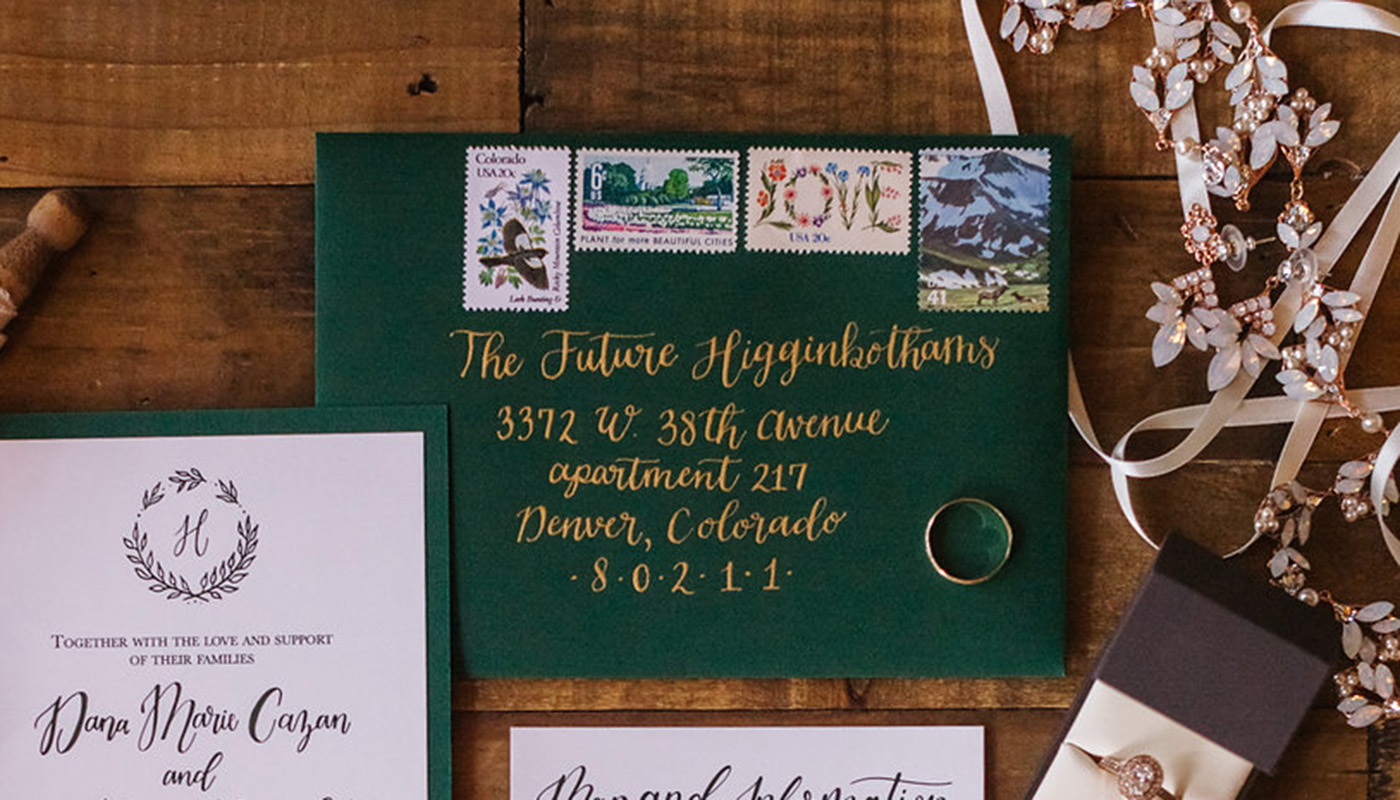 Colorado
USA 20c
Rocky Mountain Columbine
Lark Bunting &
6¢
US
PLANT for more BEAUTIFUL CITIES
LOVE
USA 20c
USA
41
The Future Higginbothams
3372 W. 38th Avenue
apartment 217
Denver, Colorado
·8·0·2·1·1·
H
Together with the love and support
of their families
Dana Marie Cazan
and
Map and Information